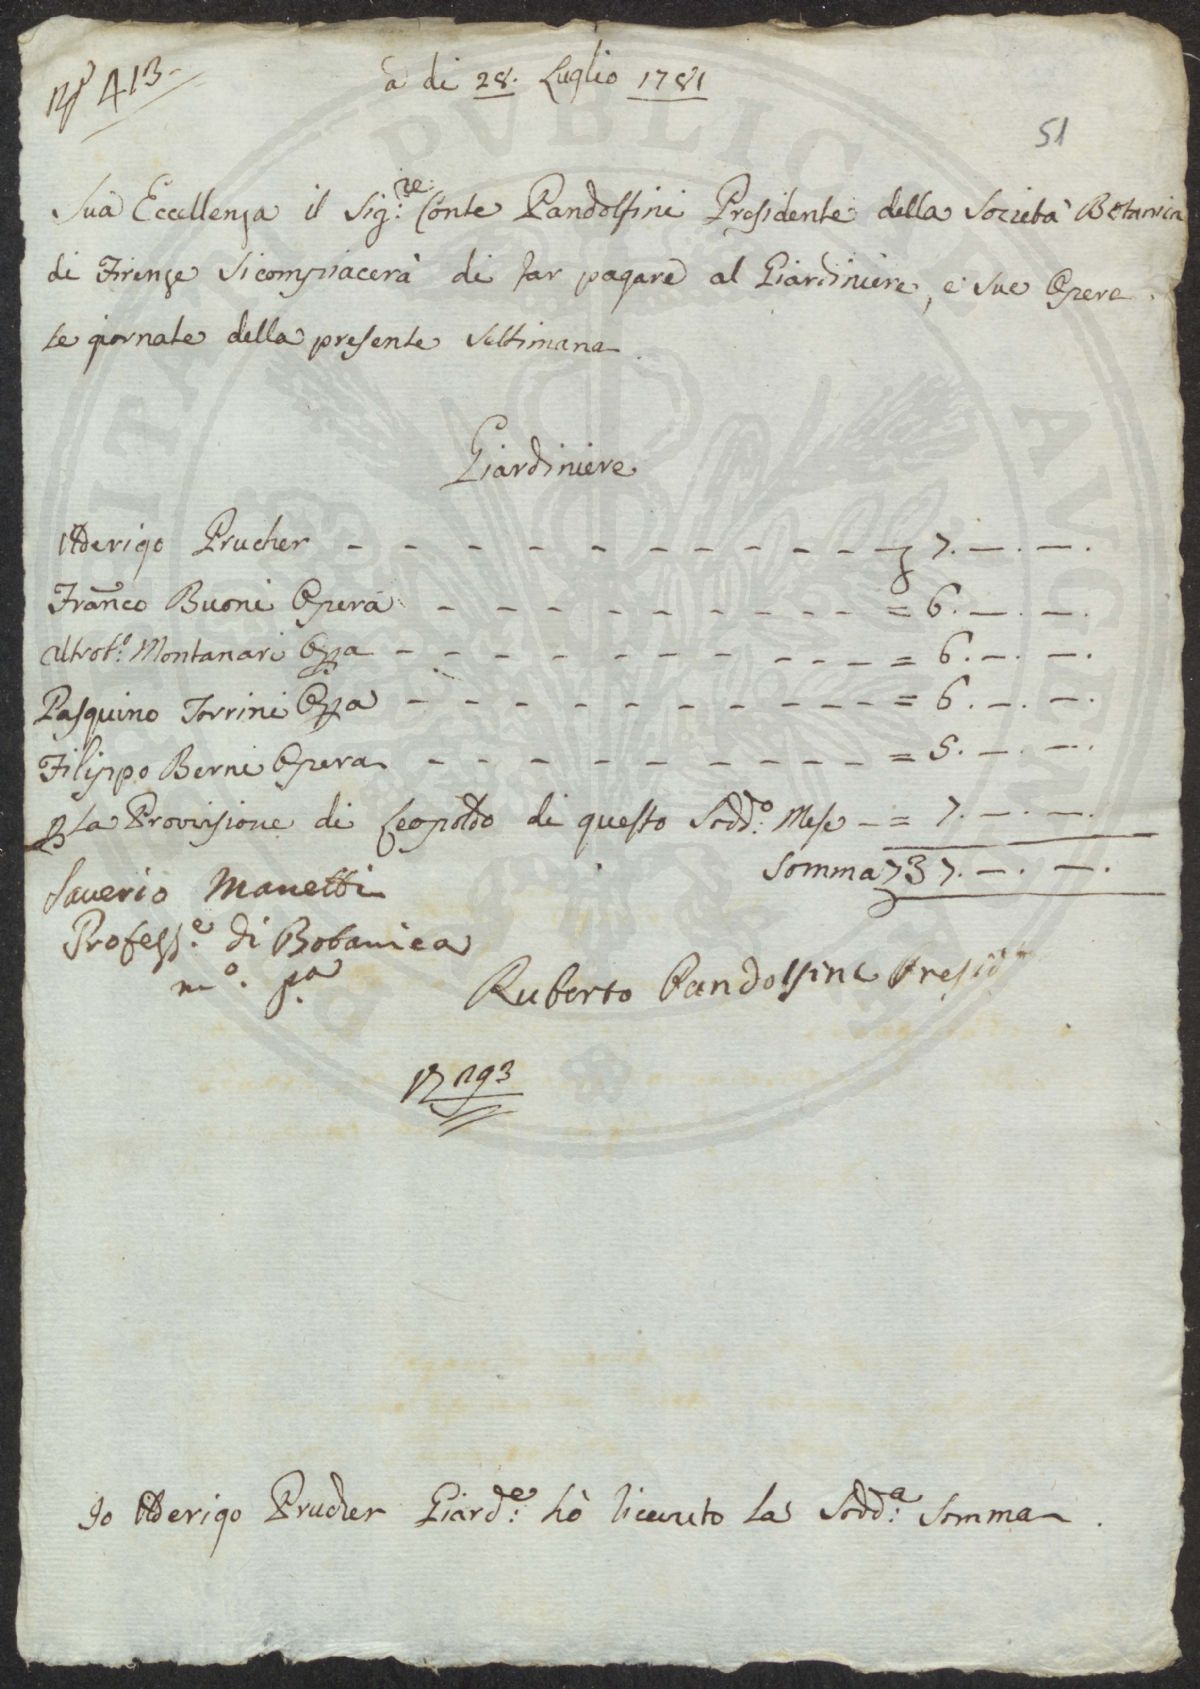 N.º 413
à di 28. Luglio 1781
51
Sua Eccellenza il Sig:re Conte Pandolfini Presidente della Società Botanica
di Firenze si compiacerà di far pagare al Giardiniere, e sue Opere
le giornate della presente Settimana
Giardiniere
Aderigo Prucher - - - - - - - - - - - - 7. —. —.
Franco Buoni Opera - - - - - - - - - = 6. —. —.
Montanari Opa - - - - - - - - - - = 6. —. —.
Pasquino Torrini Opa - - - - - - - - - = 6. —. —.
Filippo Berni Opera - - - - - - - - - = 5. —. —.
p la Provisione di Leopoldo di questo Sodd:o Mese - = 7. —. —.
Somma 37. —. —.
Saverio Manetti
Profess:e di Botanica
m.o p.a
Ruberto Pandolfini Presid
N 293
Io Aderigo Prucher Giard:e hò riceuto la Sodd:a Somma.
PUBLICAE